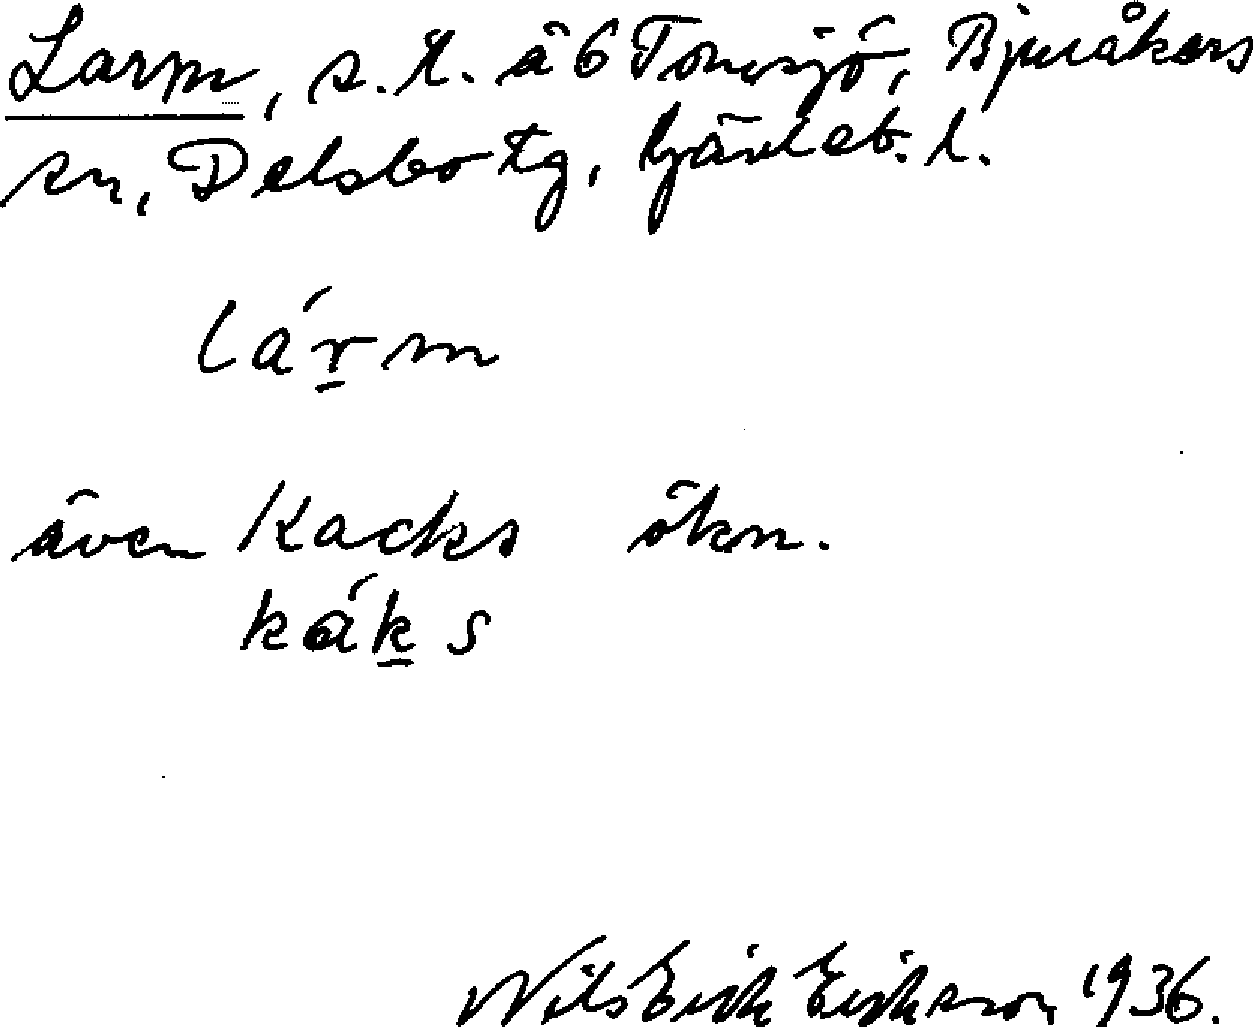 Larm, s. t. å 6 Tomsjö, Bjuråkers
sn, Delsbo tg, Gävleb. l.
lárm
även Kacks ökn.
káks
Nils Erik Erikson 1936.